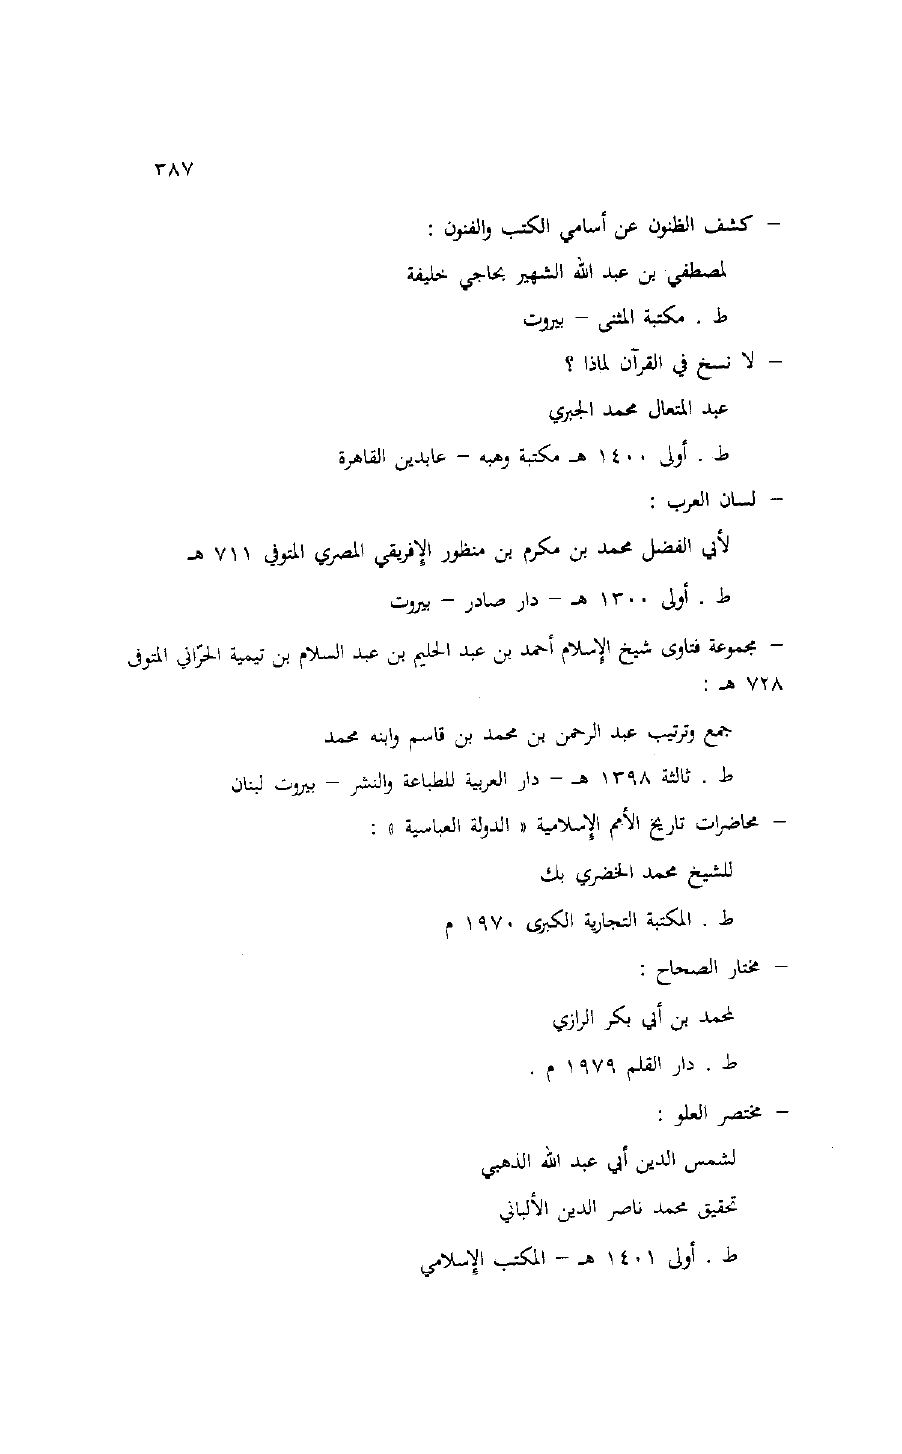 ٣٨٧
– كشف الظنون عن أسامي الكتب والفنون :
لمصطفي بن عبد الله الشهير بحاجي خليفة
ط . مكتبة المثنى – بيروت
– لا نسخ في القرآن لماذا ؟
عبد المتعال محمد الجبري
ط . أولى ١٤٠٠ هـ مكتبة وهبه – عابدين القاهرة
– لسان العرب :
لأبي الفضل محمد بن مكرم بن منظور الإفريقي المصري المتوفي ٧١١ هـ
ط . أولى ١٣٠٠ هـ – دار صادر – بيروت
– مجموعة فتاوى شيخ الإسلام أحمد بن عبد الحليم بن عبد السلام بن تيمية الحرّاني المتوفى
٧٢٨ هـ :
جمع وترتيب عبد الرحمن بن محمد بن قاسم وابنه محمد
ط . ثالثة ١٣٩٨ هـ – دار العربية للطباعة والنشر – بيروت لبنان
– محاضرات تاريخ الأمم الإسلامية « الدولة العباسية » :
للشيخ محمد الخضري بك
ط . المكتبة التجارية الكبرى ١٩٧٠ م
– مختار الصحاح :
لمحمد بن أبي بكر الرازي
ط . دار القلم ١٩٧٩ م .
– مختصر العلو :
لشمس الدين أبي عبد الله الذهبي
تحقيق محمد ناصر الدين الألباني
ط . أولى ١٤٠١ هـ – المكتب الإسلامي